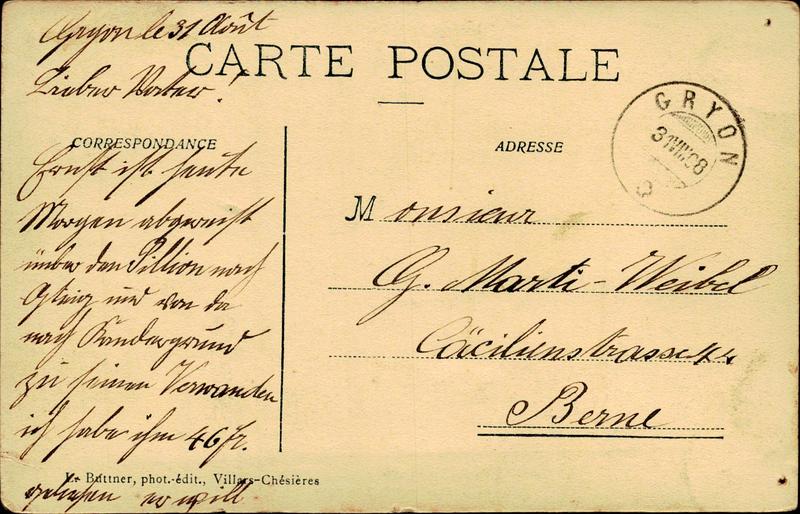 Gryon le 31 Août
CARTE POSTALE
Lieber Vater!
CORRESPONDANCE
ADRESSE
GRYON
31 VIII 08
Ernst ist heute
Morgen abgereist
über den Pillion nach
Gsteig und von da
nach Kandergrund
zu seinen Verwanden
ich habe ihm 46 fr.
geliehen er will
Monsieur
G. Marti-Weibel
Cäcilienstrasse
Berne
E. Büttner, phot.-édit., Villars-Chésières